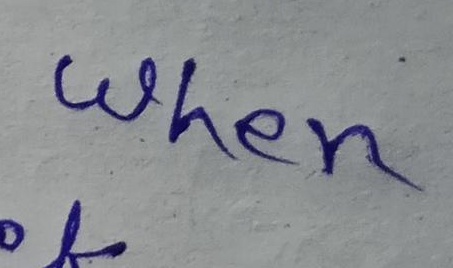 when
of